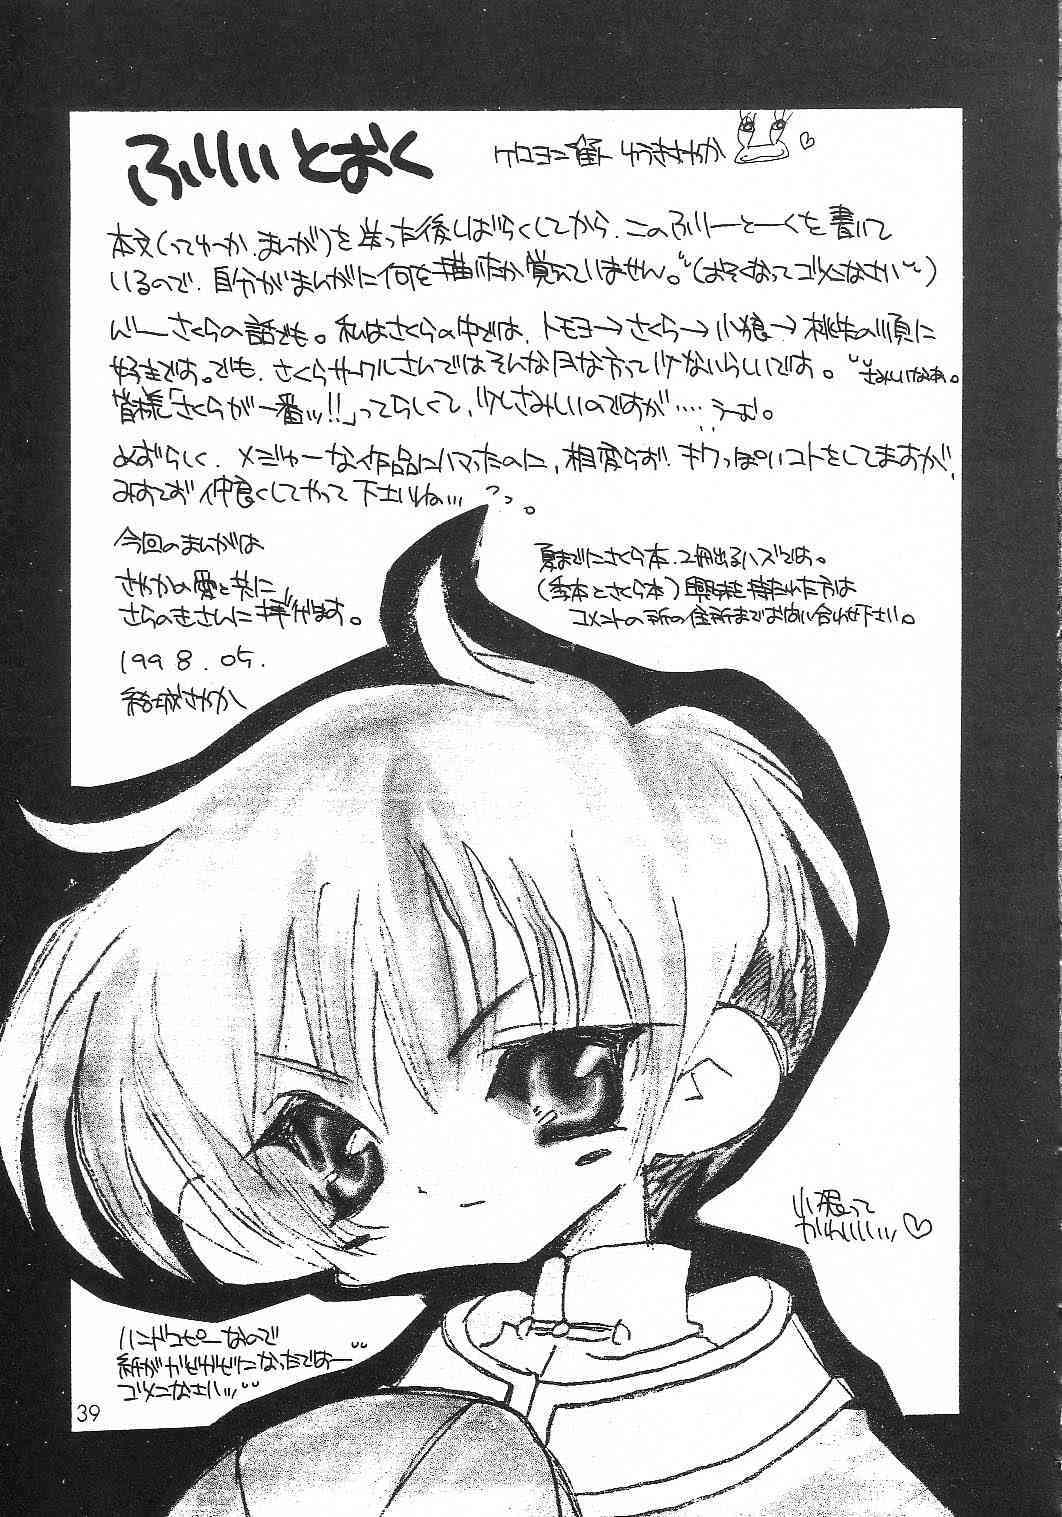 ふりいとおく
ケロヨン雀ト ゆうきさやか
本文(ってゆーか、まんが)を送った後しばらくしてから、このふりーとーくを書いて
いるので、自分がまんがに何を描いたか覚えていません。(おそくなってゴメンなさい)
んー、さくらの話でも。私はさくらの中では、トモヨ→さくら→小狼→桃矢の順に
好きです。でも、さくらサークルさんではそんな方って少ないらしいです。さみしいなあ。
皆様「さくらが一番ッ!!」ってらしくて、少しさみしいのですが‥‥うーむ。
めずらしく、メジャーな作品にハマったのに、相変らず、キワっぽいコトをしてますが、
みすてず仲良くしてやって下さいね…。
今回のまんがは
さやかの愛と共に
さらのきさんに捧げます。
1998.05.
結城さやか
夏までにさくら本、2冊出るハズです。
(李本とさくら本)興味を持たれた方は
コメントの所の住所までお問い合わせ下さい。
小狼って
かわいいいッ♡
ハンドコピーなので
紙がガビガビになったでおー
ゴメンなさいッ
39